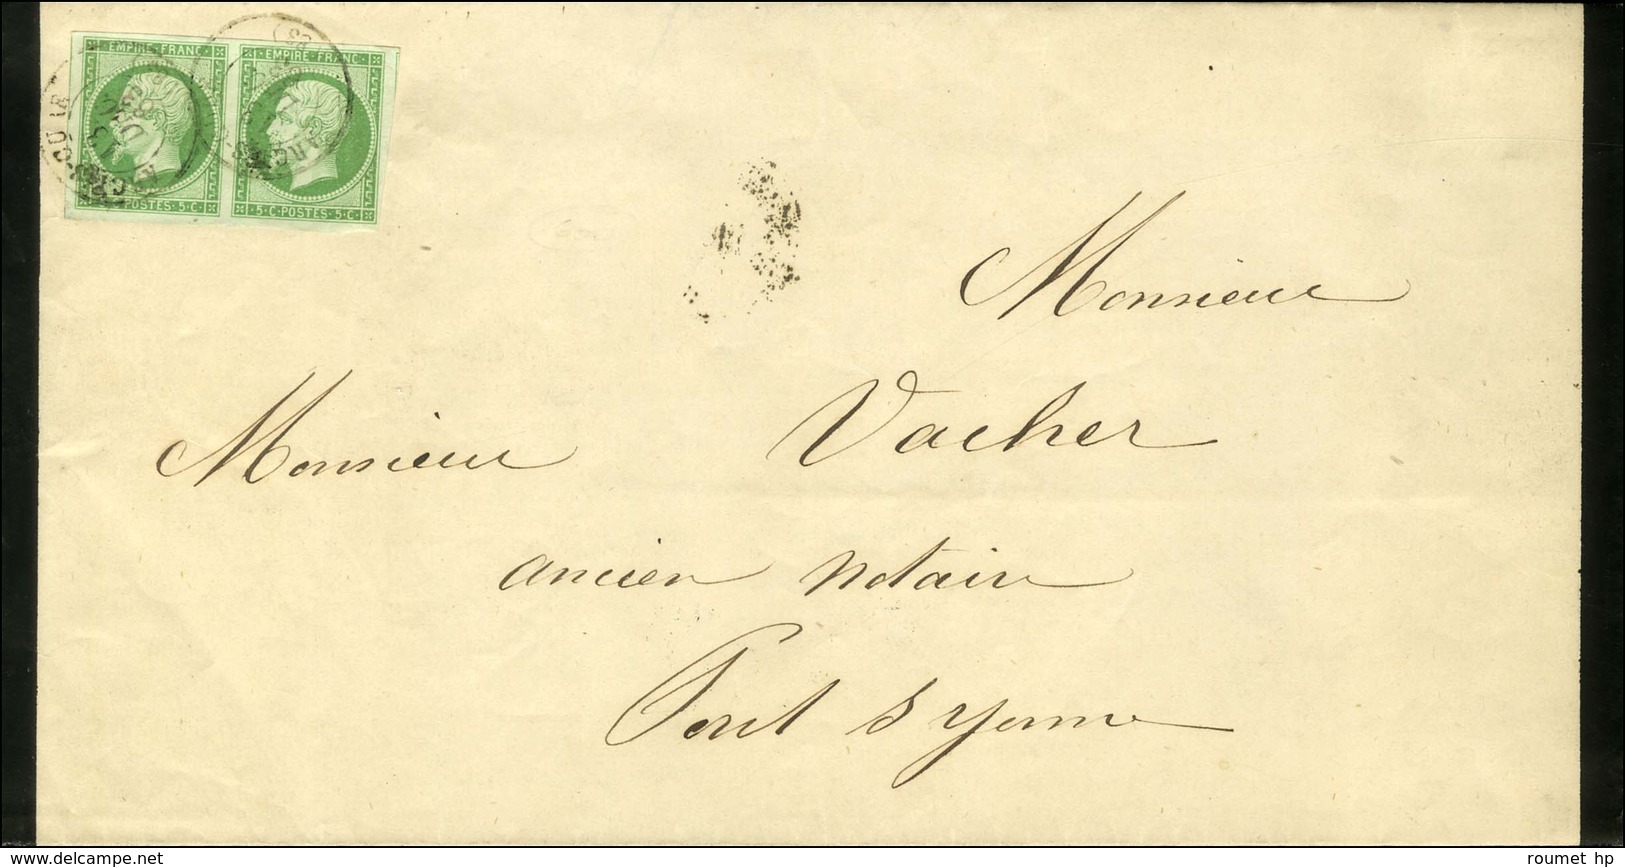 EMPIRE FRANC
EMPIRE FRANC
5·C·POSTES·5·C
5·C·POSTES·5·C
Monsieur
Monsieur
Vacher
ancien Notaire
Pont s Yonne
www.delcampe.net
roumet hp